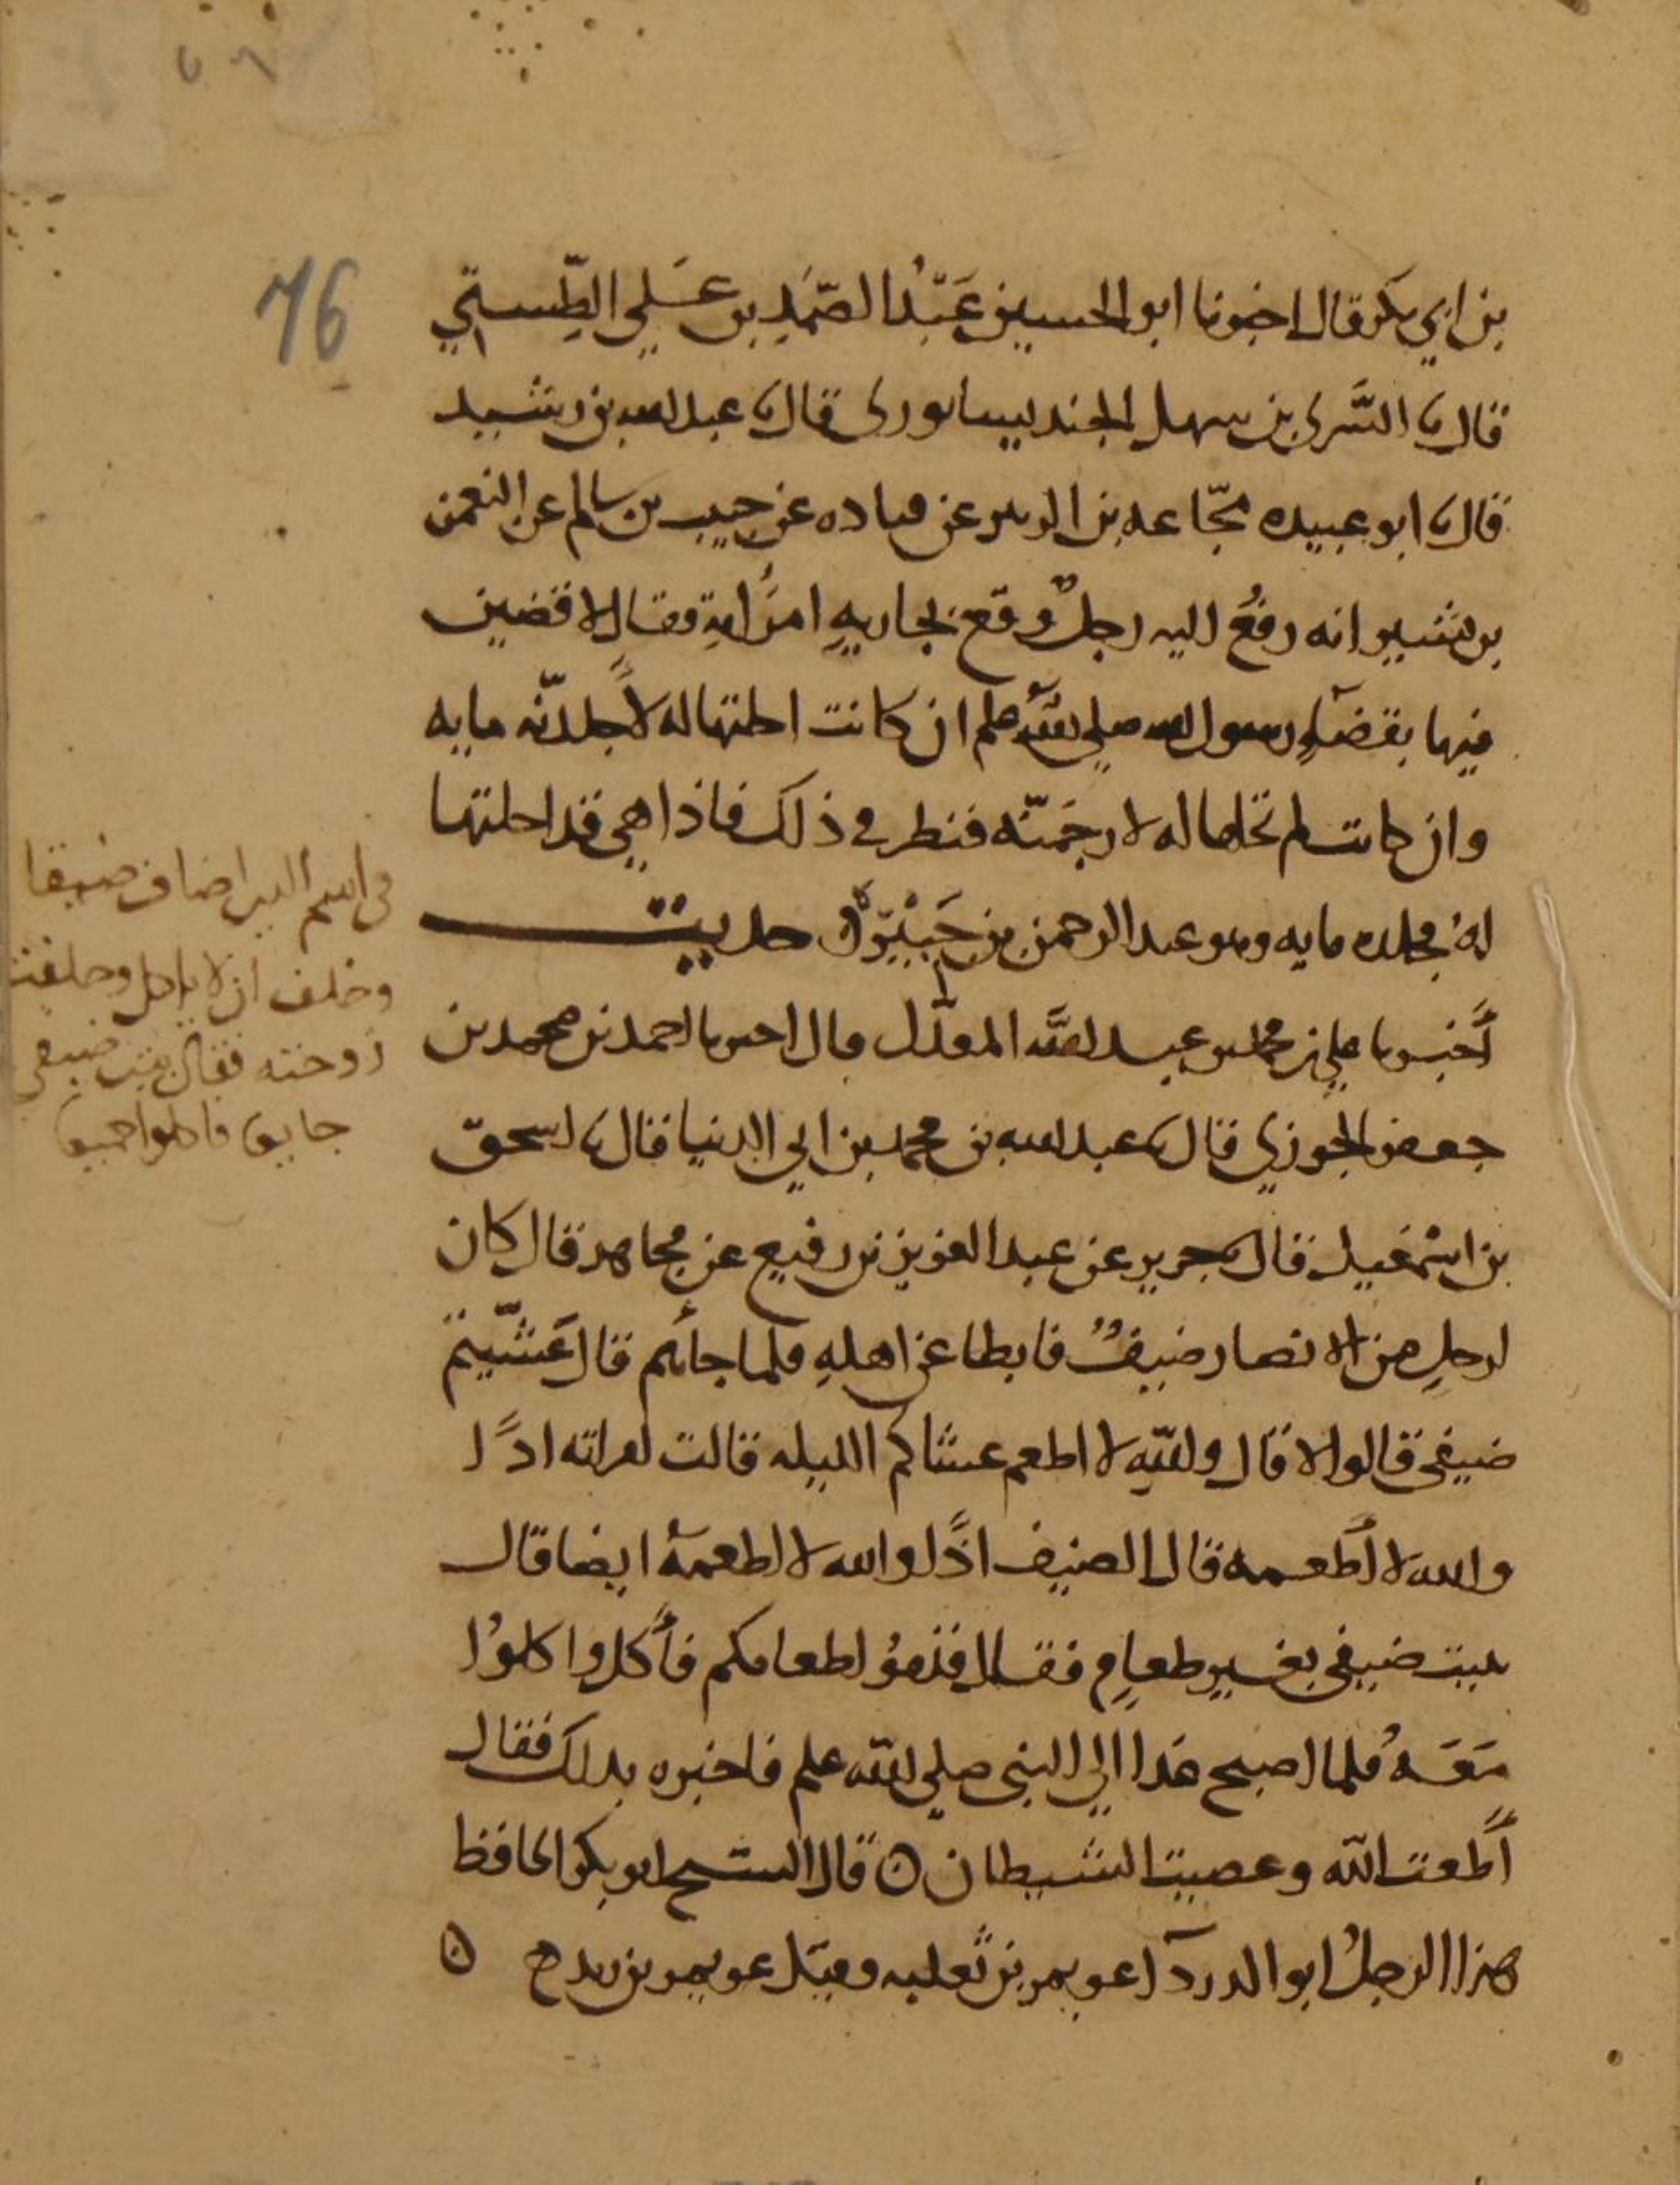 76
بن ابي بكر قال اخبرنا ابو الحسين عَبْدُ الصَّمَدِ بن عَلي الطَّستي
قال ثنا السَّري بن سهل الجنديسابوري قال ثنا عبد الله بن رشيد
قال ثنا ابو عبيده مجّاعه بن الزبير عن قتاده عن حبيب بن سالم عن النعمن
بن بشير انه رفُع اليه رجلٌ وقع بجاريةِ امرَاتِهِ فقال لاقضين
فيها بقضآءِ رسول الله صلى الله علم ان كانت احلتها له لاَجلدنّه مايه
وان كانت لم تحلها له لارجمَنّه فنظر في ذلك فاذا هي قد احلتها
لهُ فجلده مايه وهو عبد الرحمن بن حُنَيْنٍ ه حديث
أخبرنا علي بن محمد بن عبد الله المعدّل قال اخبرنا احمد بن محمد بن
جعفر الجوزي قال ثنا عبد الله بن محمد بن ابي الدنيا قال ثنا اسحق
بن اسْمعيل قال ثنا جرير عن عبد العزيز بن رفيع عن مجاهد قال كان
لرجلٍ من الانصار ضيفٌ فابطا عن اهلهِ فلما جائهم قال عَشَّيتم
ضيفي قالوا لا قال والله لا اطعم عشاكم الليله قالت امراته اذًا
والله لا أطعمه قال الضيف اذًا والله لا اطعمهُ ايضا قال
يبيت ضيفي بغير طعامٍ فقال قدموُا طعامكم فأكل واكلوُا
مَعَهُ فلما اصبح غدا الي النبي صلي الله علم فاخبره بذلك فقال
أَطعت الله وعصيت الشيطان ه قال الشيخ ابو بكر الحافظ
هذا الرجلُ ابو الدردآء عويمر بن ثعلبه وقيل عويمر بن ه
اضاف ضيفا
وحلف ان لا ياكل وحلفت
زوجته فقال يبيت ضيفي